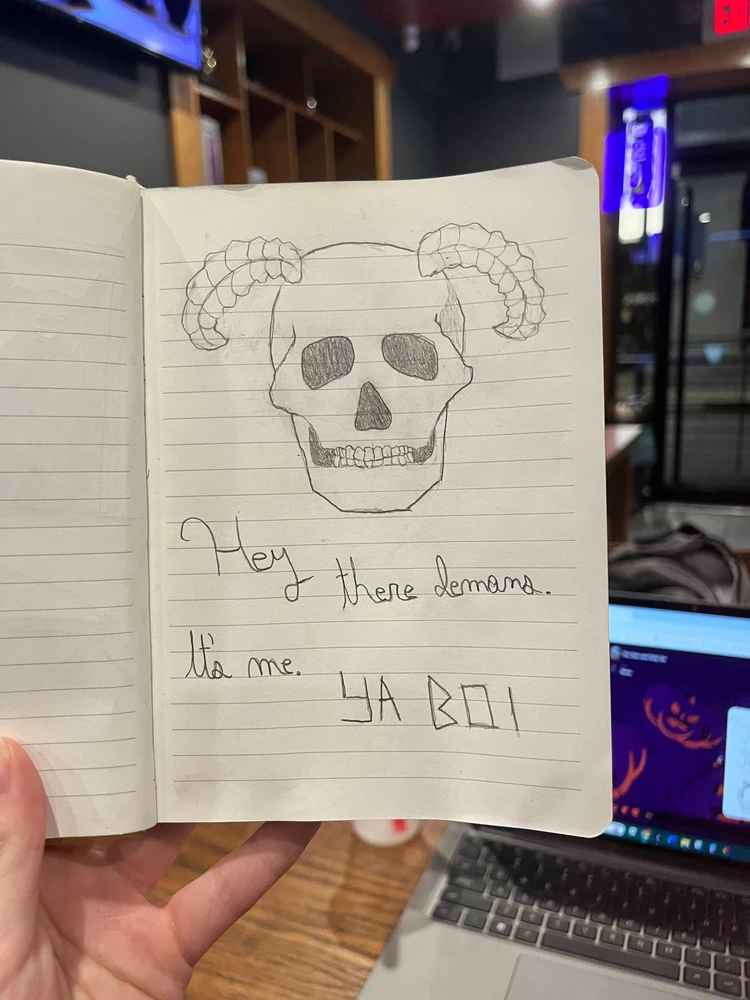 Hey there demons.
It's me.
YA BOI